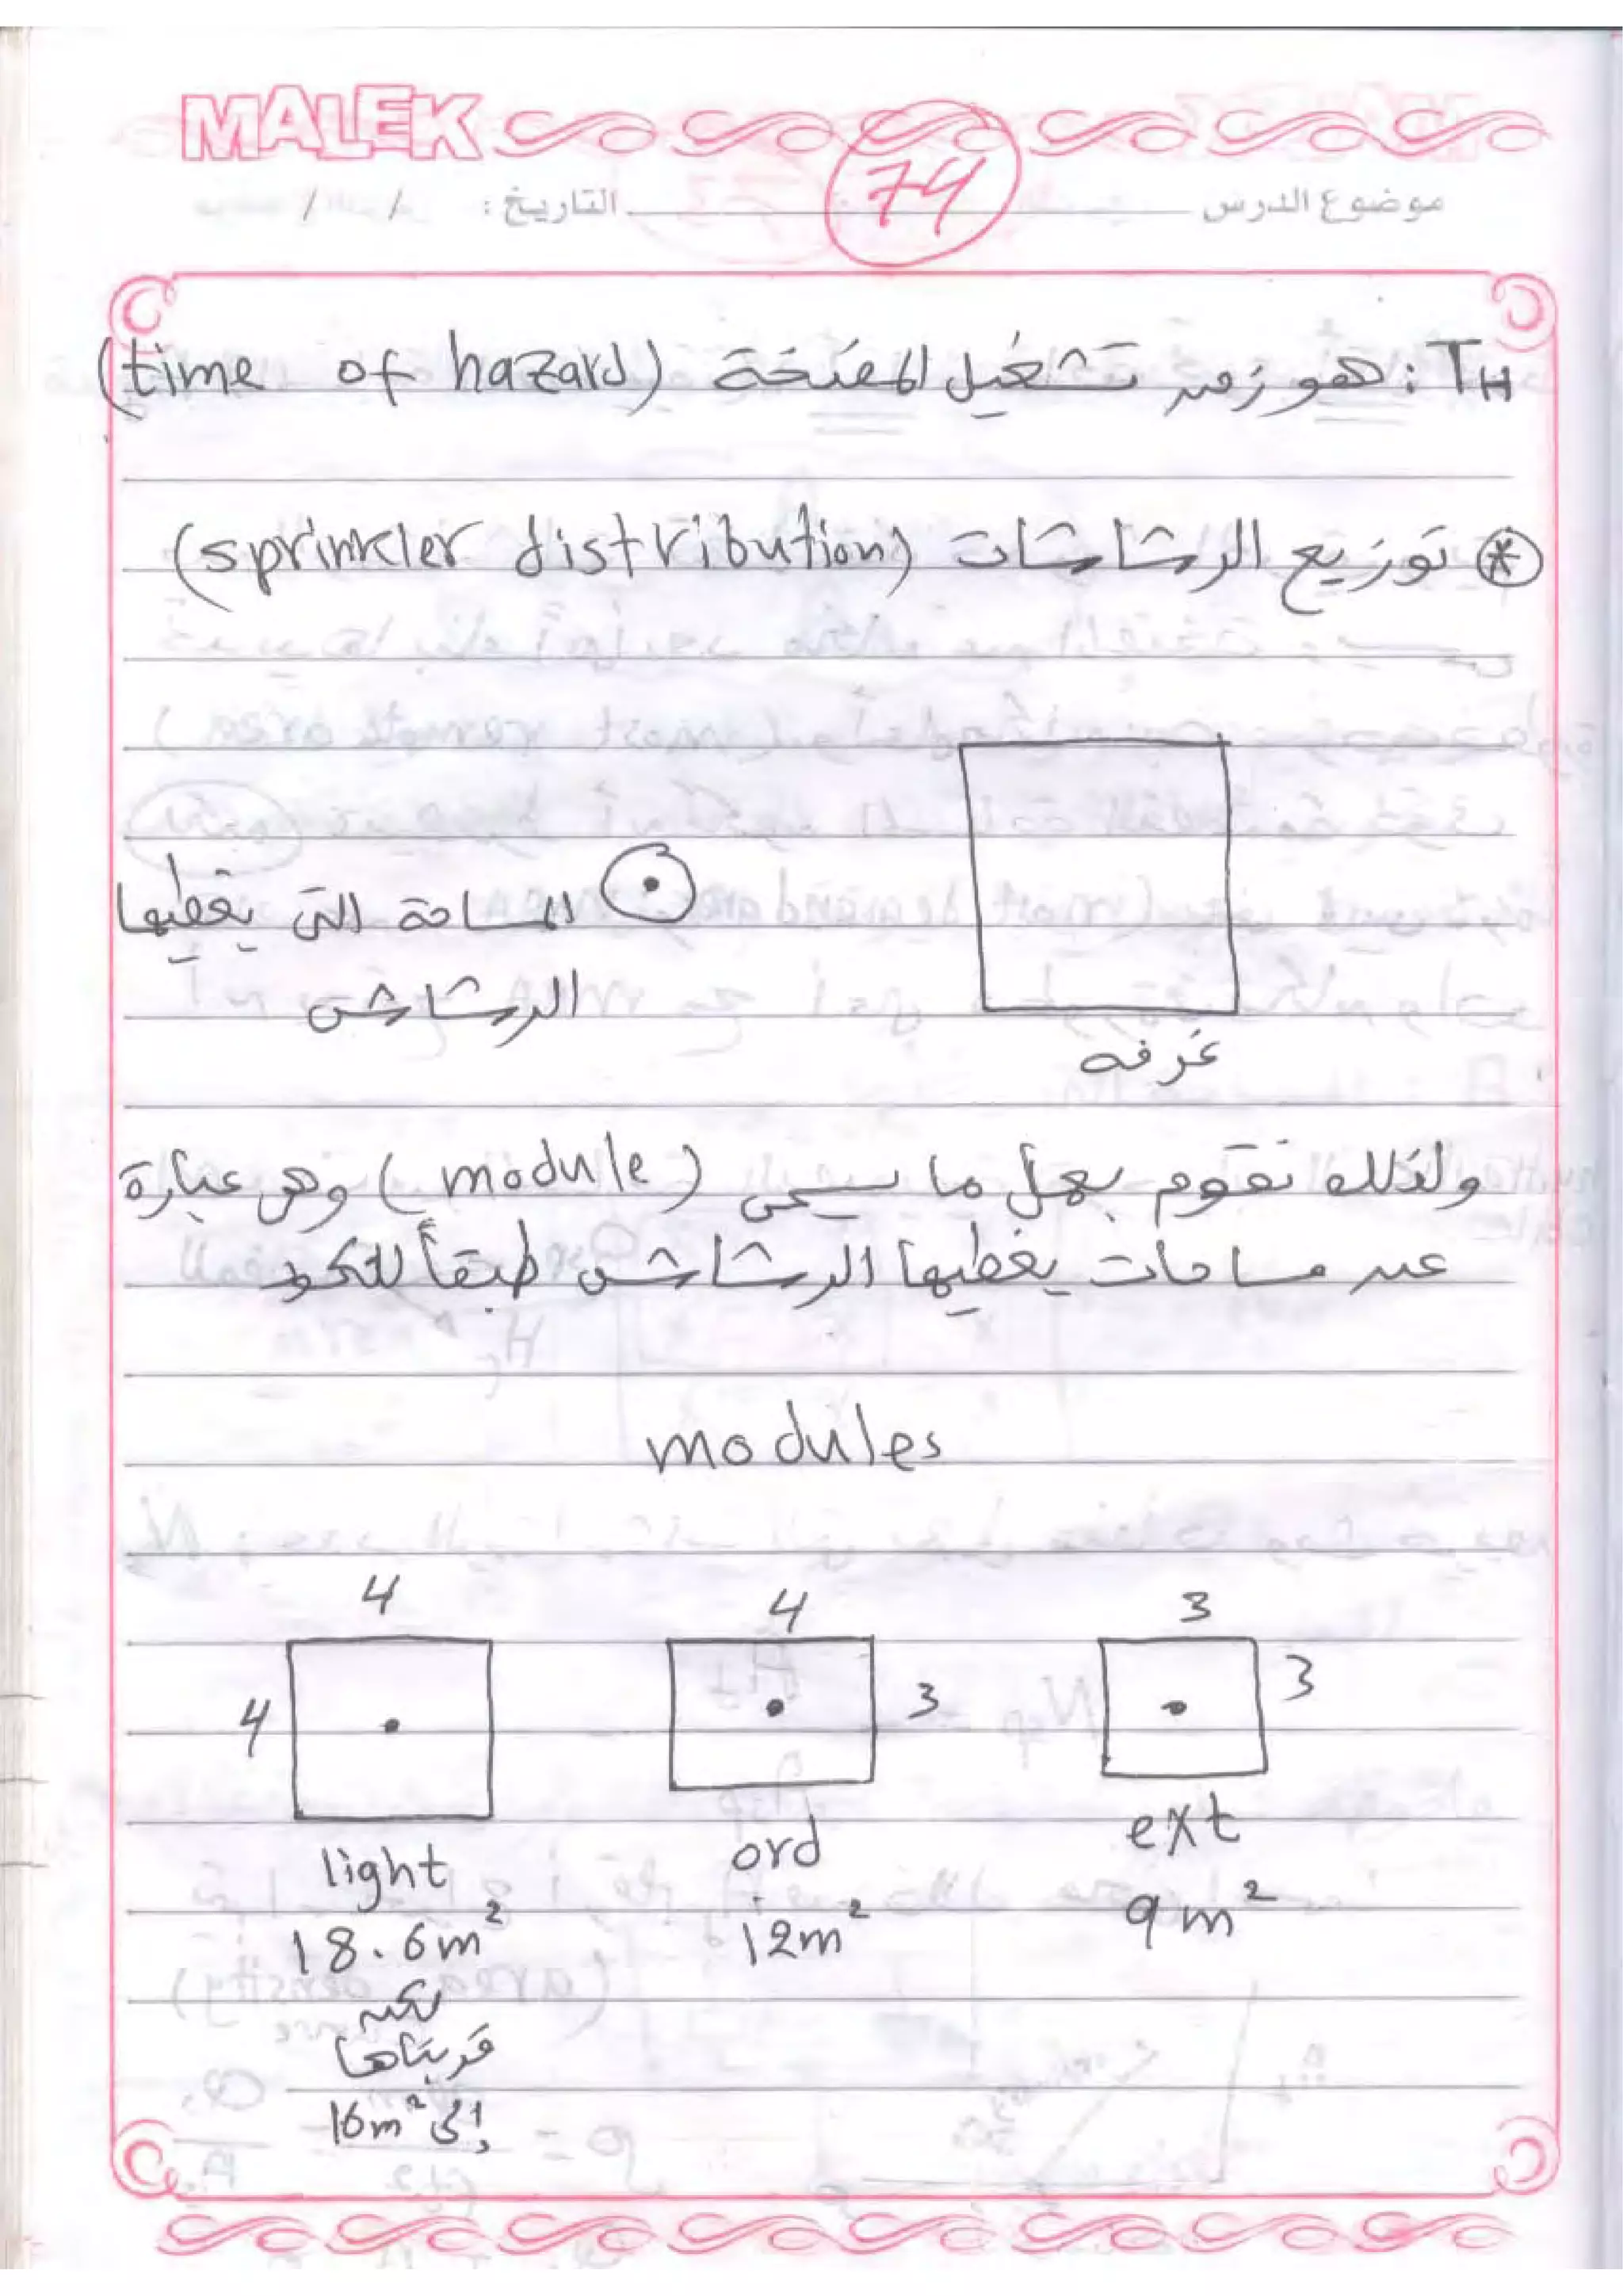 MALEK
74
موضوع الدرس التاريخ : / /
TH : هو زمن تشغيل المضخة (time of hazard)
* توزيع الرشاشات (sprinkler distribution)
المساحة التى يغطيها
الرشاش
غرفه
ولذلك نقوم بعمل ما يسمى (module) وهى عبارة
عن مساحات يغطيها الرشاش طبقاً للكود
modules
4 4 3
4 3 3
light ord ext
18.6m² 12m² 9m²
لكن
قربناها
إلى 16m²